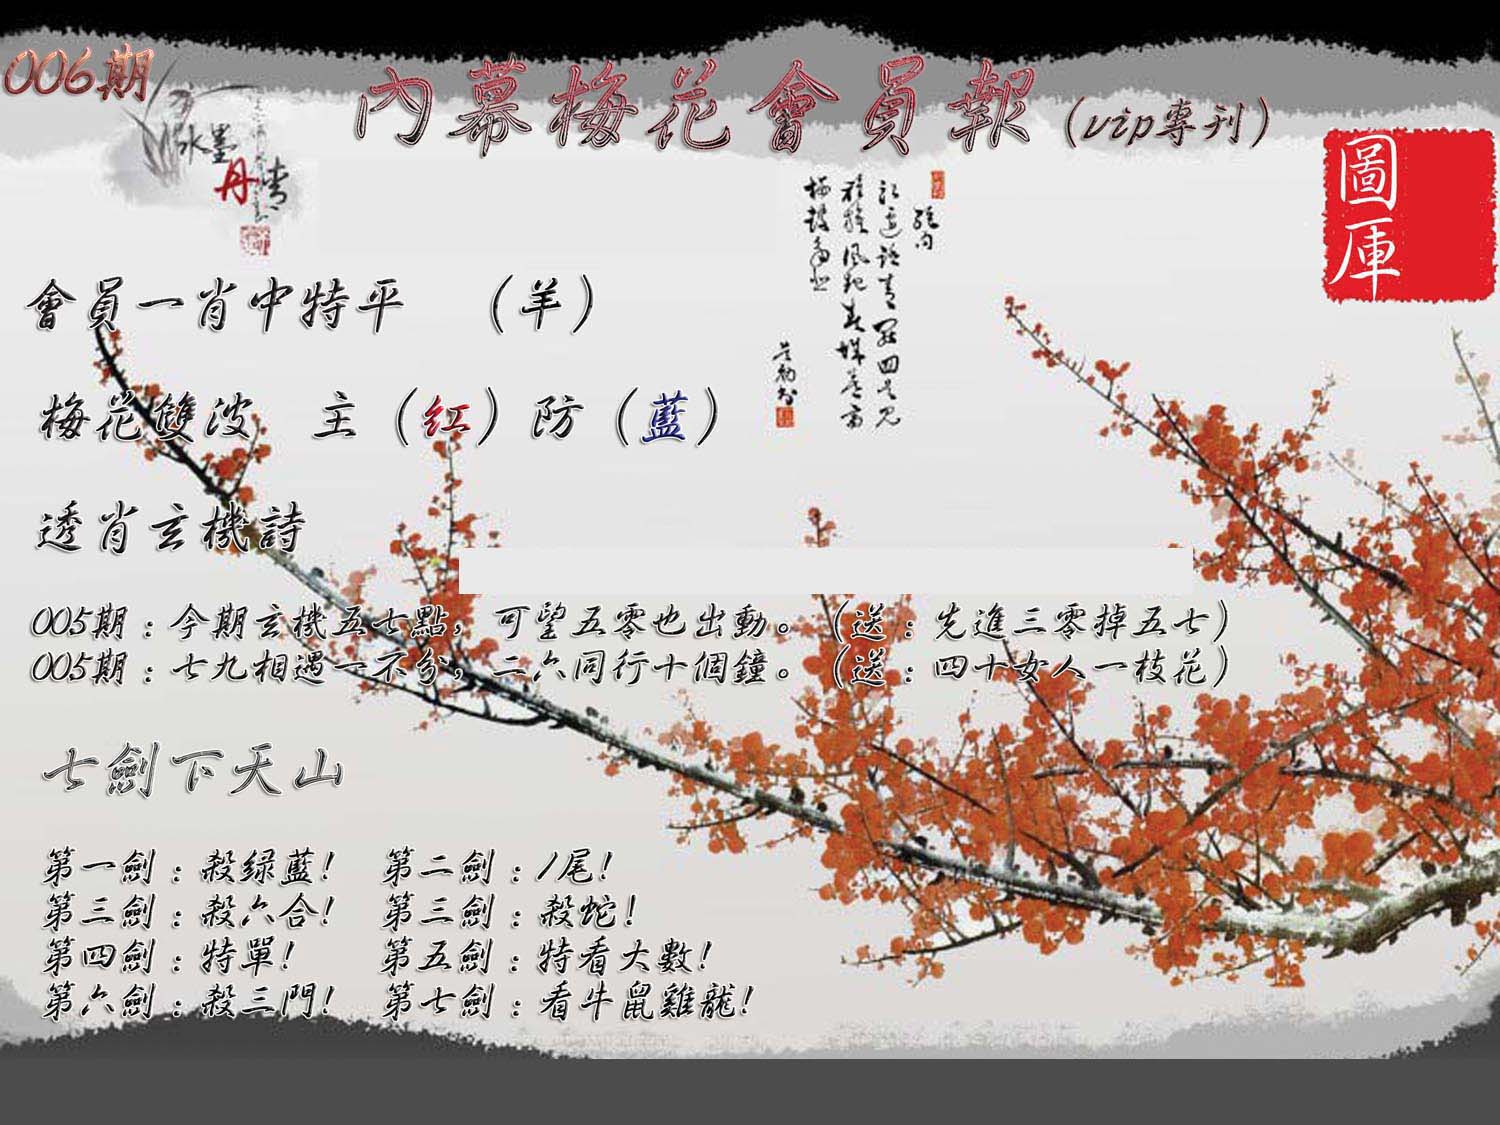 006期
內幕梅花會員報（vip專刊）
水墨
丹青
圖庫
會員一肖中特平　（羊）
梅花雙波　主（紅）防（藍）
透肖玄機詩
005期：今期玄機五七點，可望五零也出動。（送：先進三零掉五七）
005期：七九相遇一不分，二六同行十個鐘。（送：四十女人一枝花）
七劍下天山
第一劍：殺绿藍!　第二劍：1尾!
第三劍：殺六合!　第三劍：殺蛇!
第四劍：特單!　第五劍：特看大數!
第六劍：殺三門!　第七劍：看牛鼠雞龍!